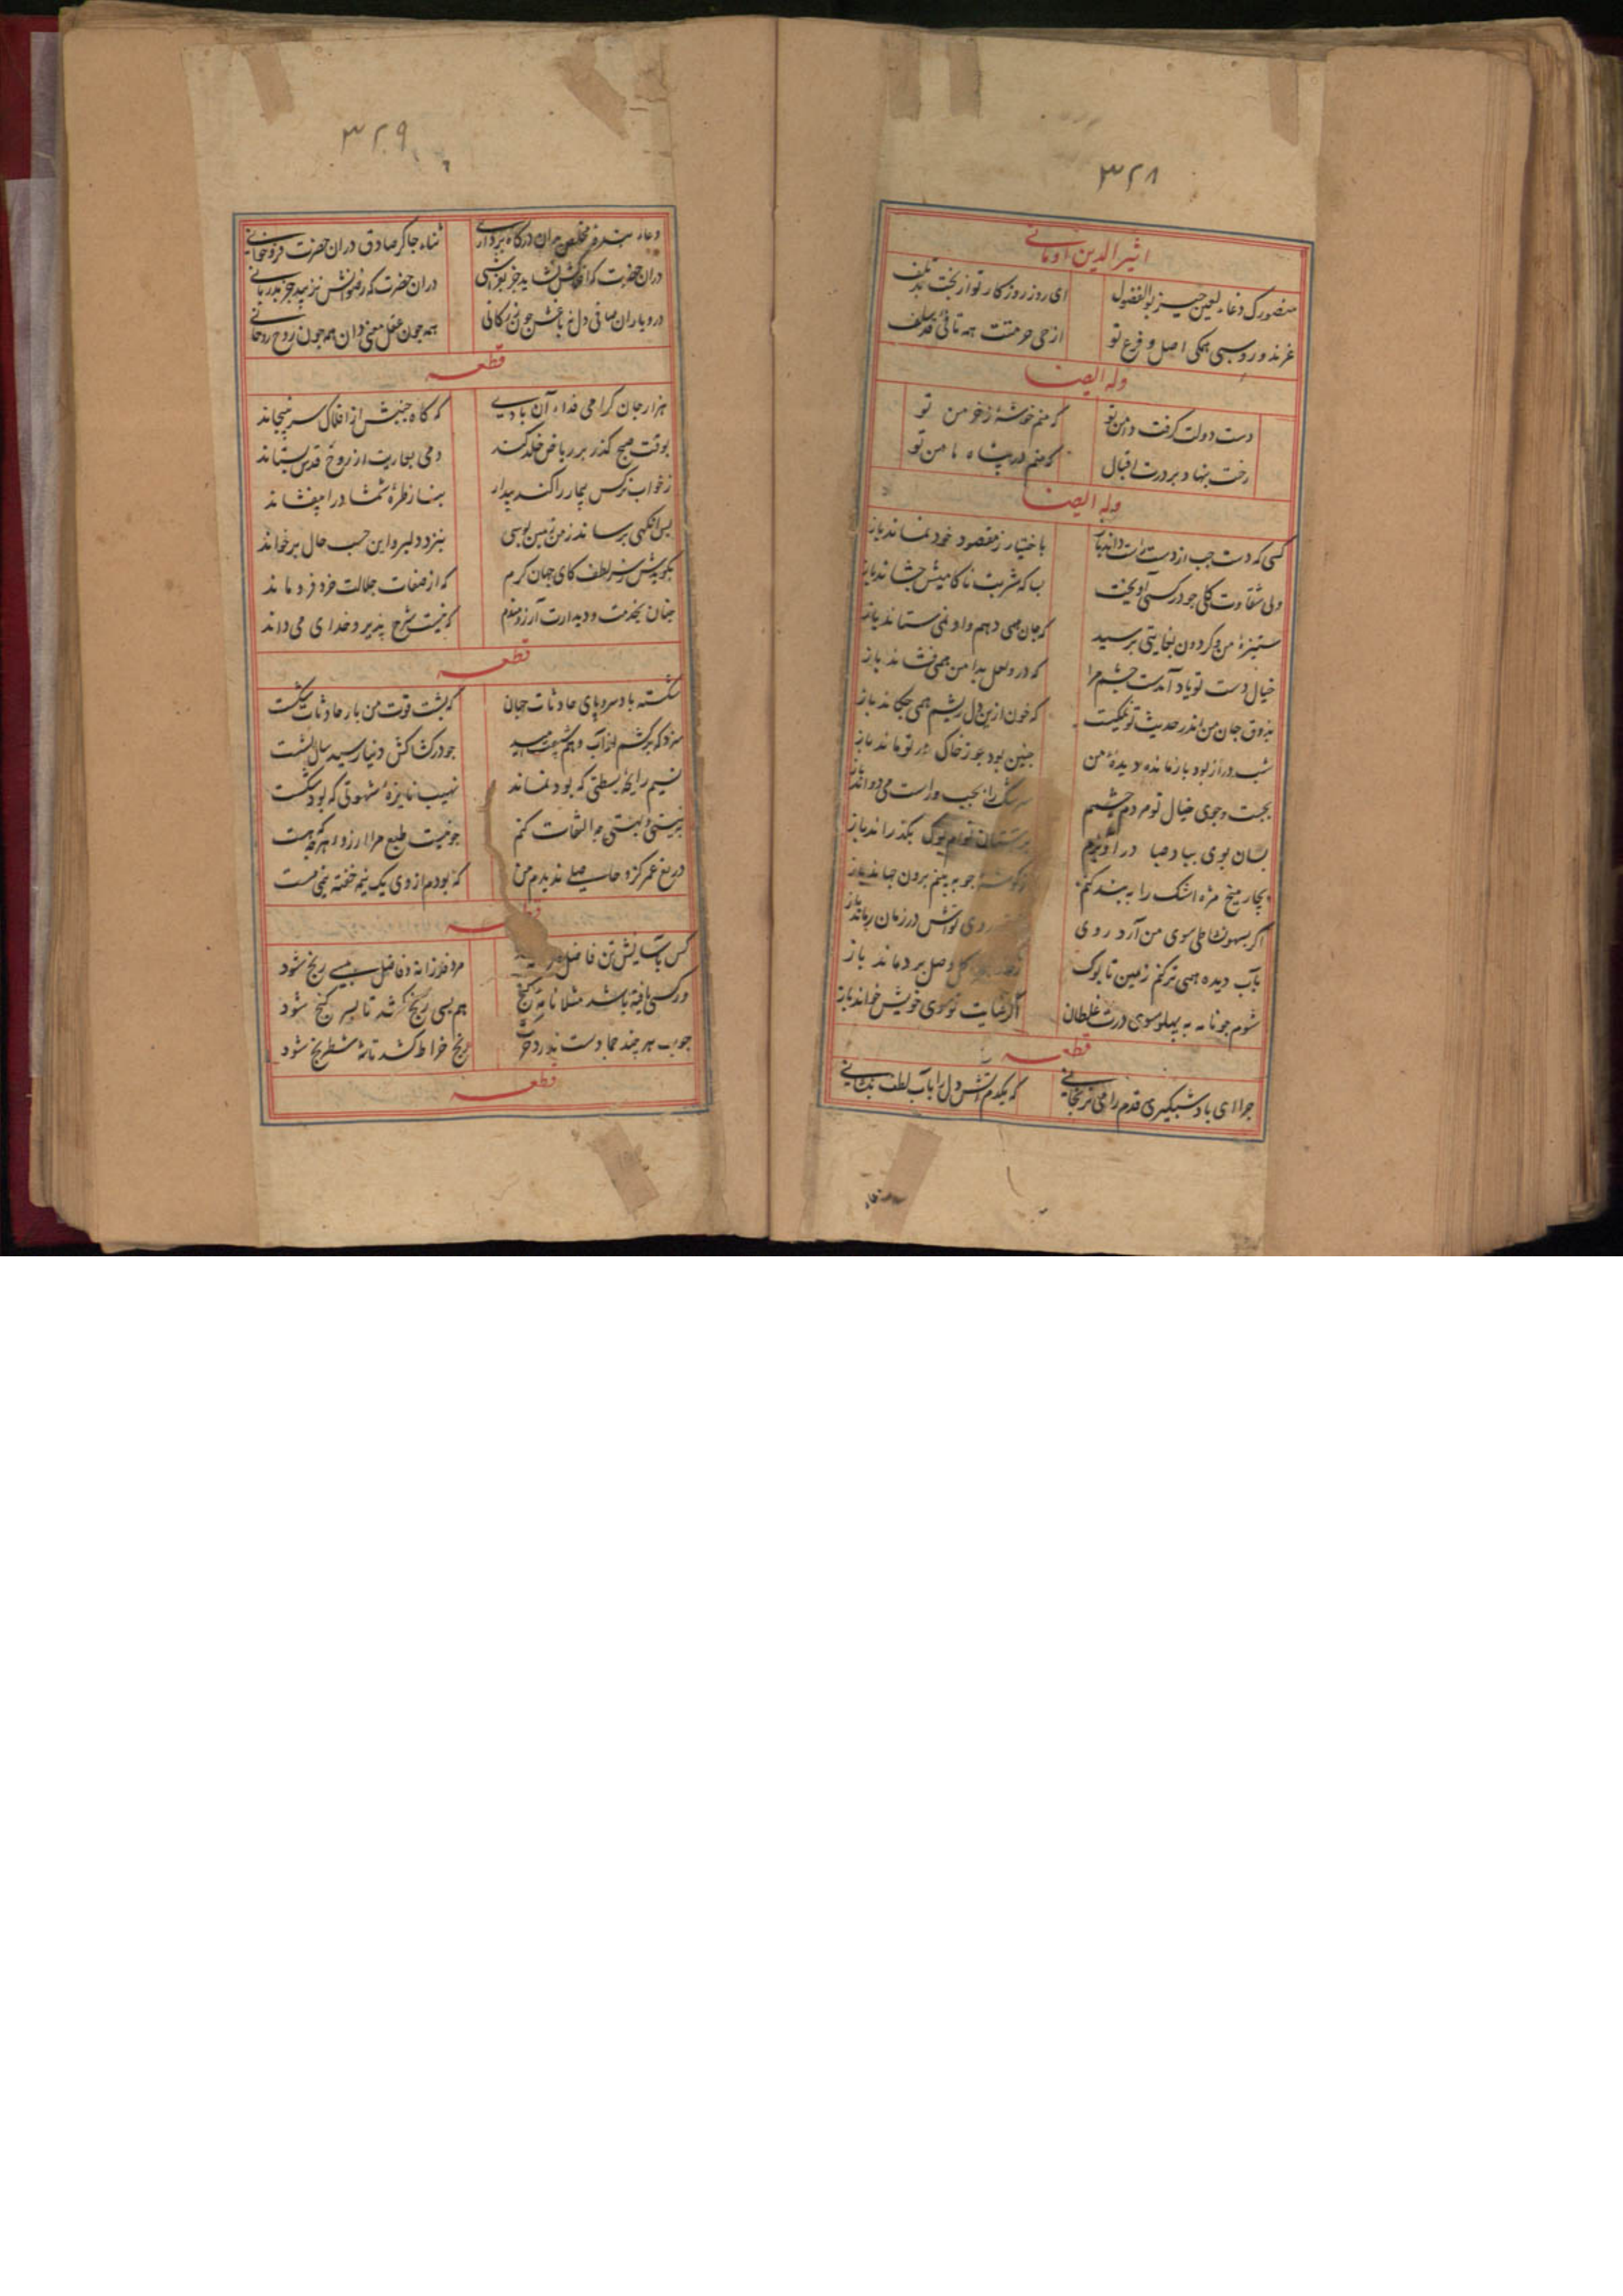 ۳۲۸
اثیر الدین اومانی
منصورک دعاء بو الفضول ای روز روز کار تو از بخت
غرند و روسبی همکی اصل و فرع تو
وله ایضا
دست دولت گرفت دامن تو که منم خوشهٔ ز خرمن تو
رخت بنهاد بر درت اقبال که منم در پناه مامن تو
وله ایضا
کسی که دست جب از دست راست داند باز باختیار ز مقصود خود نماند باز
ولی شقاوت کلی جو در کسی آویخت بسا که شربت ناکامیش جشاند باز
ستیزهٔ من و گردون بغایتی برسید که جان همی دهم و او نمی ستاند باز
خیال دست تو یاد آمدست جشم مرا که در و لعل بدامن همی فشاند باز
بذوق جان من اندر حدیث تو که خون ازین دل ریشم همی جکاند باز
شب دراز بود باز مانده دیدهٔ من جنین بود جو ز خاک در تو ماند باز
بجست و جوی خیال تو مردم جشم سرشک را بجب و راست می دواند باز
بسان بوی بباد صبا در آویزم بر تو بگذراند باز
بجار میخ مژه اشک را به بند کنم ز جو به بینم برون جهاند باز
اگر بسهو نشاطی سوی من آرد روی در زمان رماند باز
بآب دیده همی تر کنم زمین تا بوک وصل بر دماند باز
شوم جو نامه به پهلو سوی درت غلطان اگر عنایت تو سوی خویش خواند باز
قطعه
جرا ای باد شبگیری قدم را می نرنجانی که یکدم آتش دل را بآب لطف بنشانی
۳۲۹
دعاء بنده مخلص بران درگاه برداری ثناء جاکر صادق دران حضرت فرو خوانی
دران حضرت که رضوانش نزیبد جز بدربانی
همه جون عقل معنی دان همه جون روح روحانی
قطعه
هزار جان گرامی فداء آن بادی که گاه جنبش از افلاک سر نپیچاند
بوقت صبح گذر بر ریاض خلد کند دمی بعاریت از روح قدس بستاند
ز خواب نرگس بیمار را کند بیدار بناز طرهٔ شمشاد را بیفشاند
پس آنکهی برساند ز من زمین بوسی بنزد دلبر و این حسب حال بر خواند
بگویدش ز سر لطف کای جهان کرم که از صفات جلالت خرد فرو ماند
جنان بخدمت و دیدارت آرزومندم که نیست شرح پذیر و خدای می داند
قطعه
شکسته باد سر و پای حادثات جهان که پشت قوت من بار حادثات شکست
جو در کشاکش دنیا رسید سال بشست
نسیم رایحهٔ که بود نماند نهیب نایزهٔ شهوتی که بود شکست
به نیستی و بهستی جه التفات کنم جو نیست طبع مرا آرزو بهر که هست
دریغ عمر کزو حاصلی ندیدم من که بودم از وی یک نیمه خفته نیمی مست
قطعه
کس باسایش تن فاضل و مرد فرزانه و فاضل ببسی رنج شود
ور کسی یافته باشد مثلا نامهٔ گنج هم بسی رنج کشد تا بسر گنج شود
جوب هر چند جمادست ندارد حرکت رنج خراط کشد تا شه شطرنج شود
قطعه